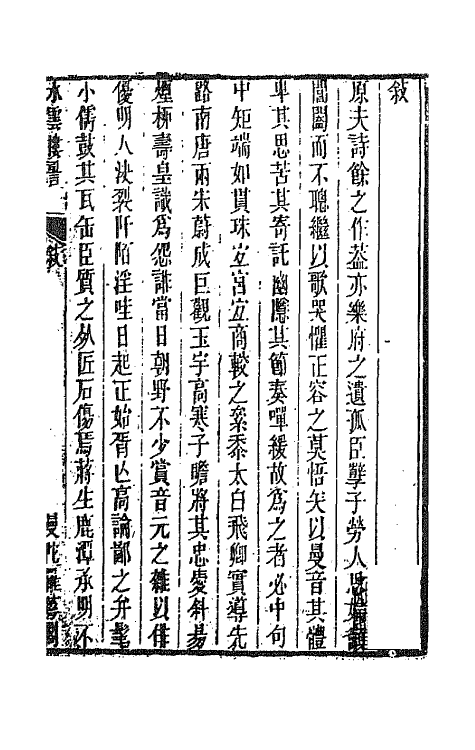 敍
原夫詩餘之作蓋亦樂府之遺孤臣孽子勞人思婦
閶闔而不聰繼以歌哭懼正容之莫悟矢以曼音其體
卑其思苦其寄託幽隱其節奏嘽緩故爲之者必中句
中矩端如貫珠宜宮宜商較之絫黍太白飛卿實導先
路南唐兩宋蔚成巨觀玉宇高寒子瞻將其忠愛斜陽
煙柳壽皇識爲怨誹當日朝野不少賞音元之雜以俳
優明人決裂阡陌淫哇日起正始胥亡高論鄙之弁髦
小儒鼓其瓦缶臣質之死匠石傷焉蔣生鹿潭承明不
水雲樓詞 敍 曼陀羅華閣